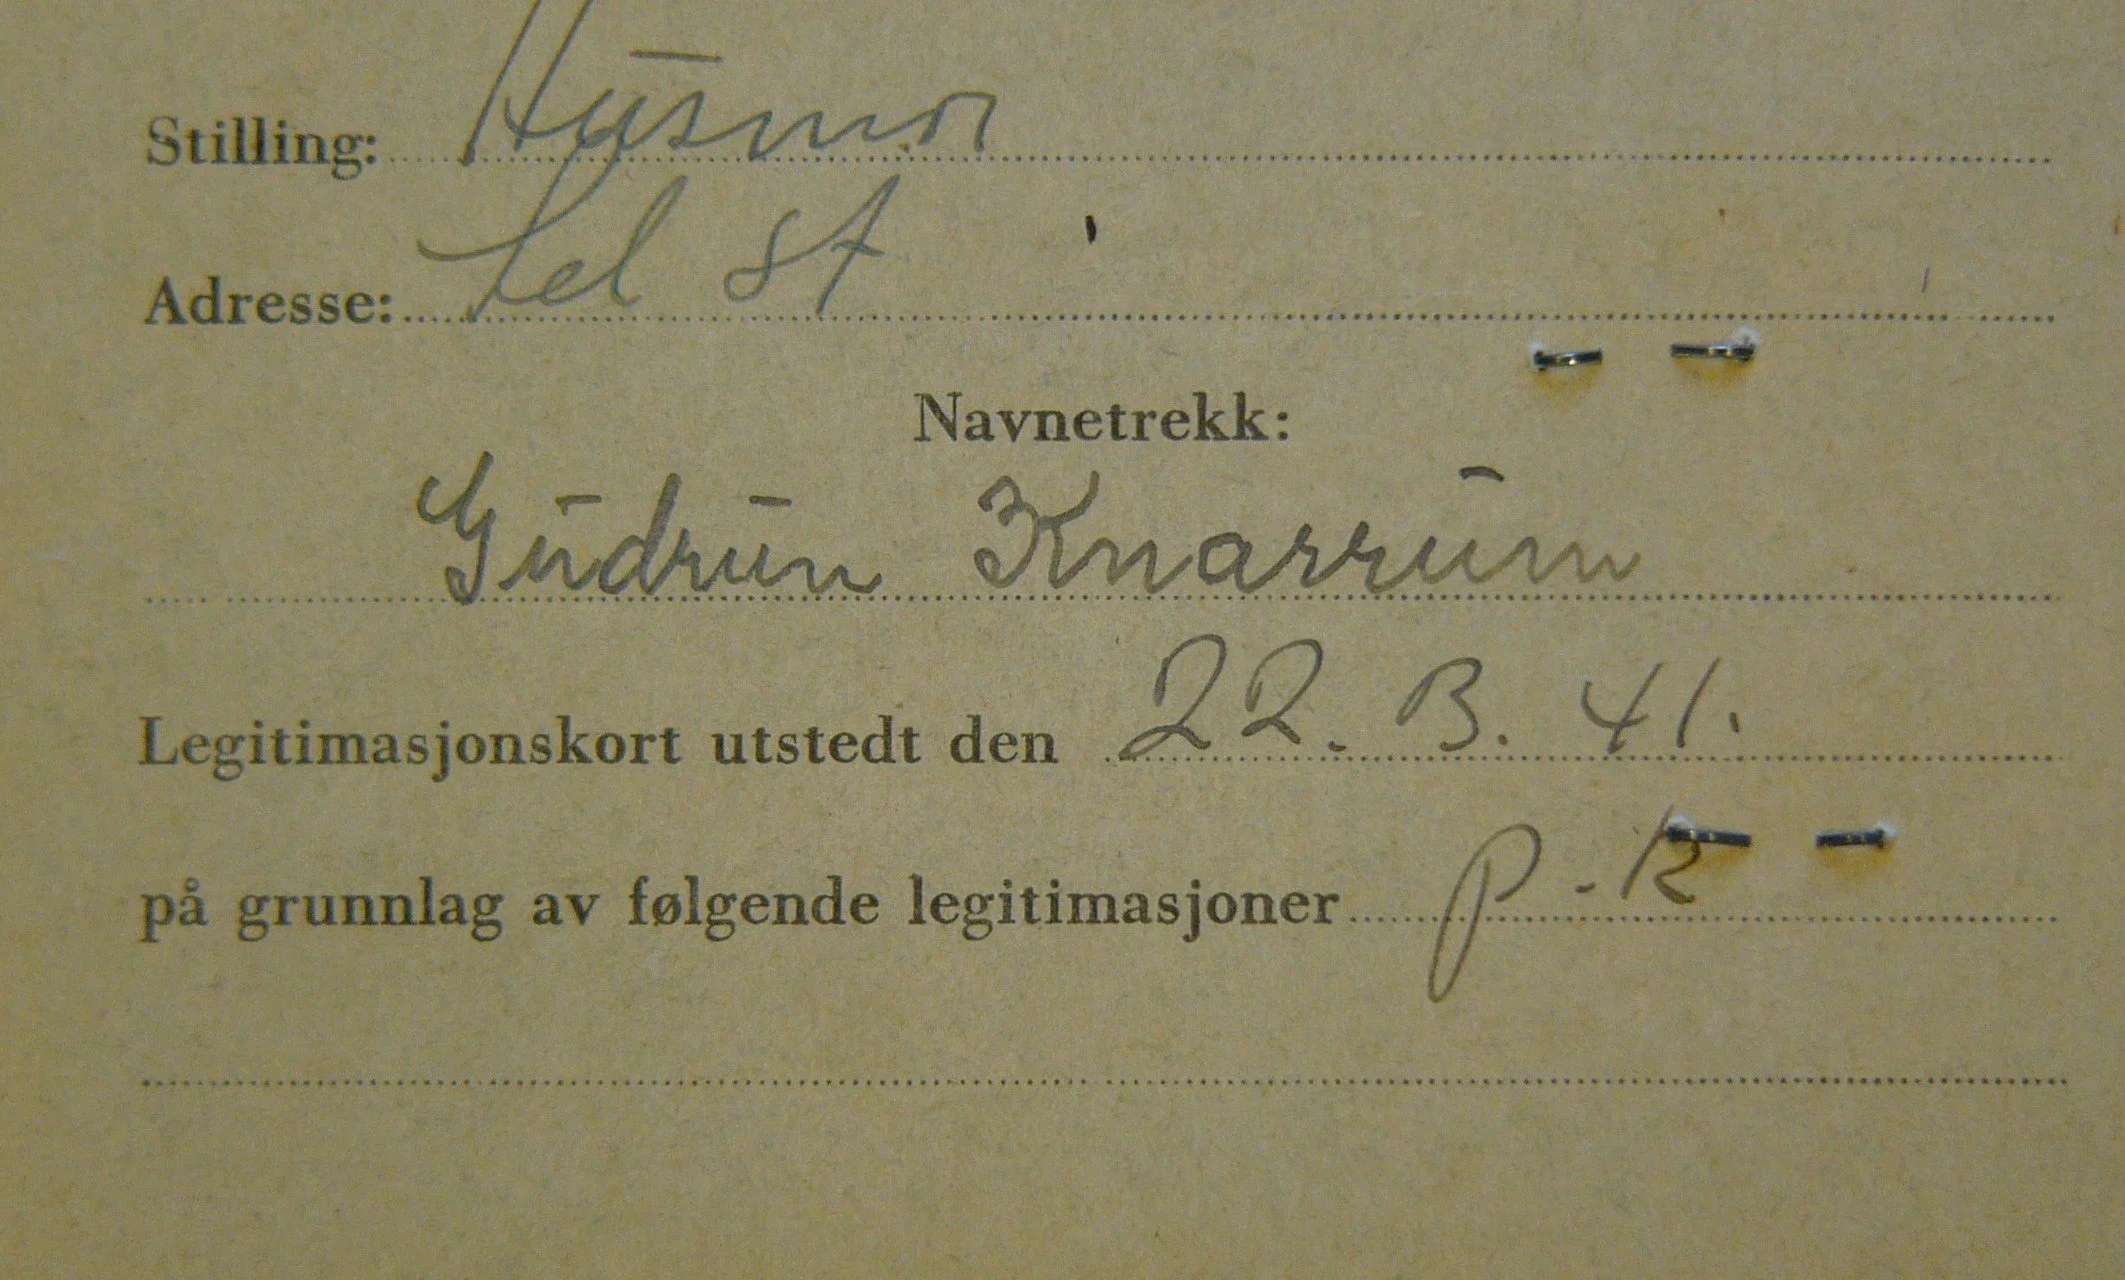 Stilling: Husmor
Adresse: Sel st
Navnetrekk:
Gudrun Knarrum
Legitimasjonskort utstedt den 22. B. 41.
på grunnlag av følgende legitimasjoner P-K